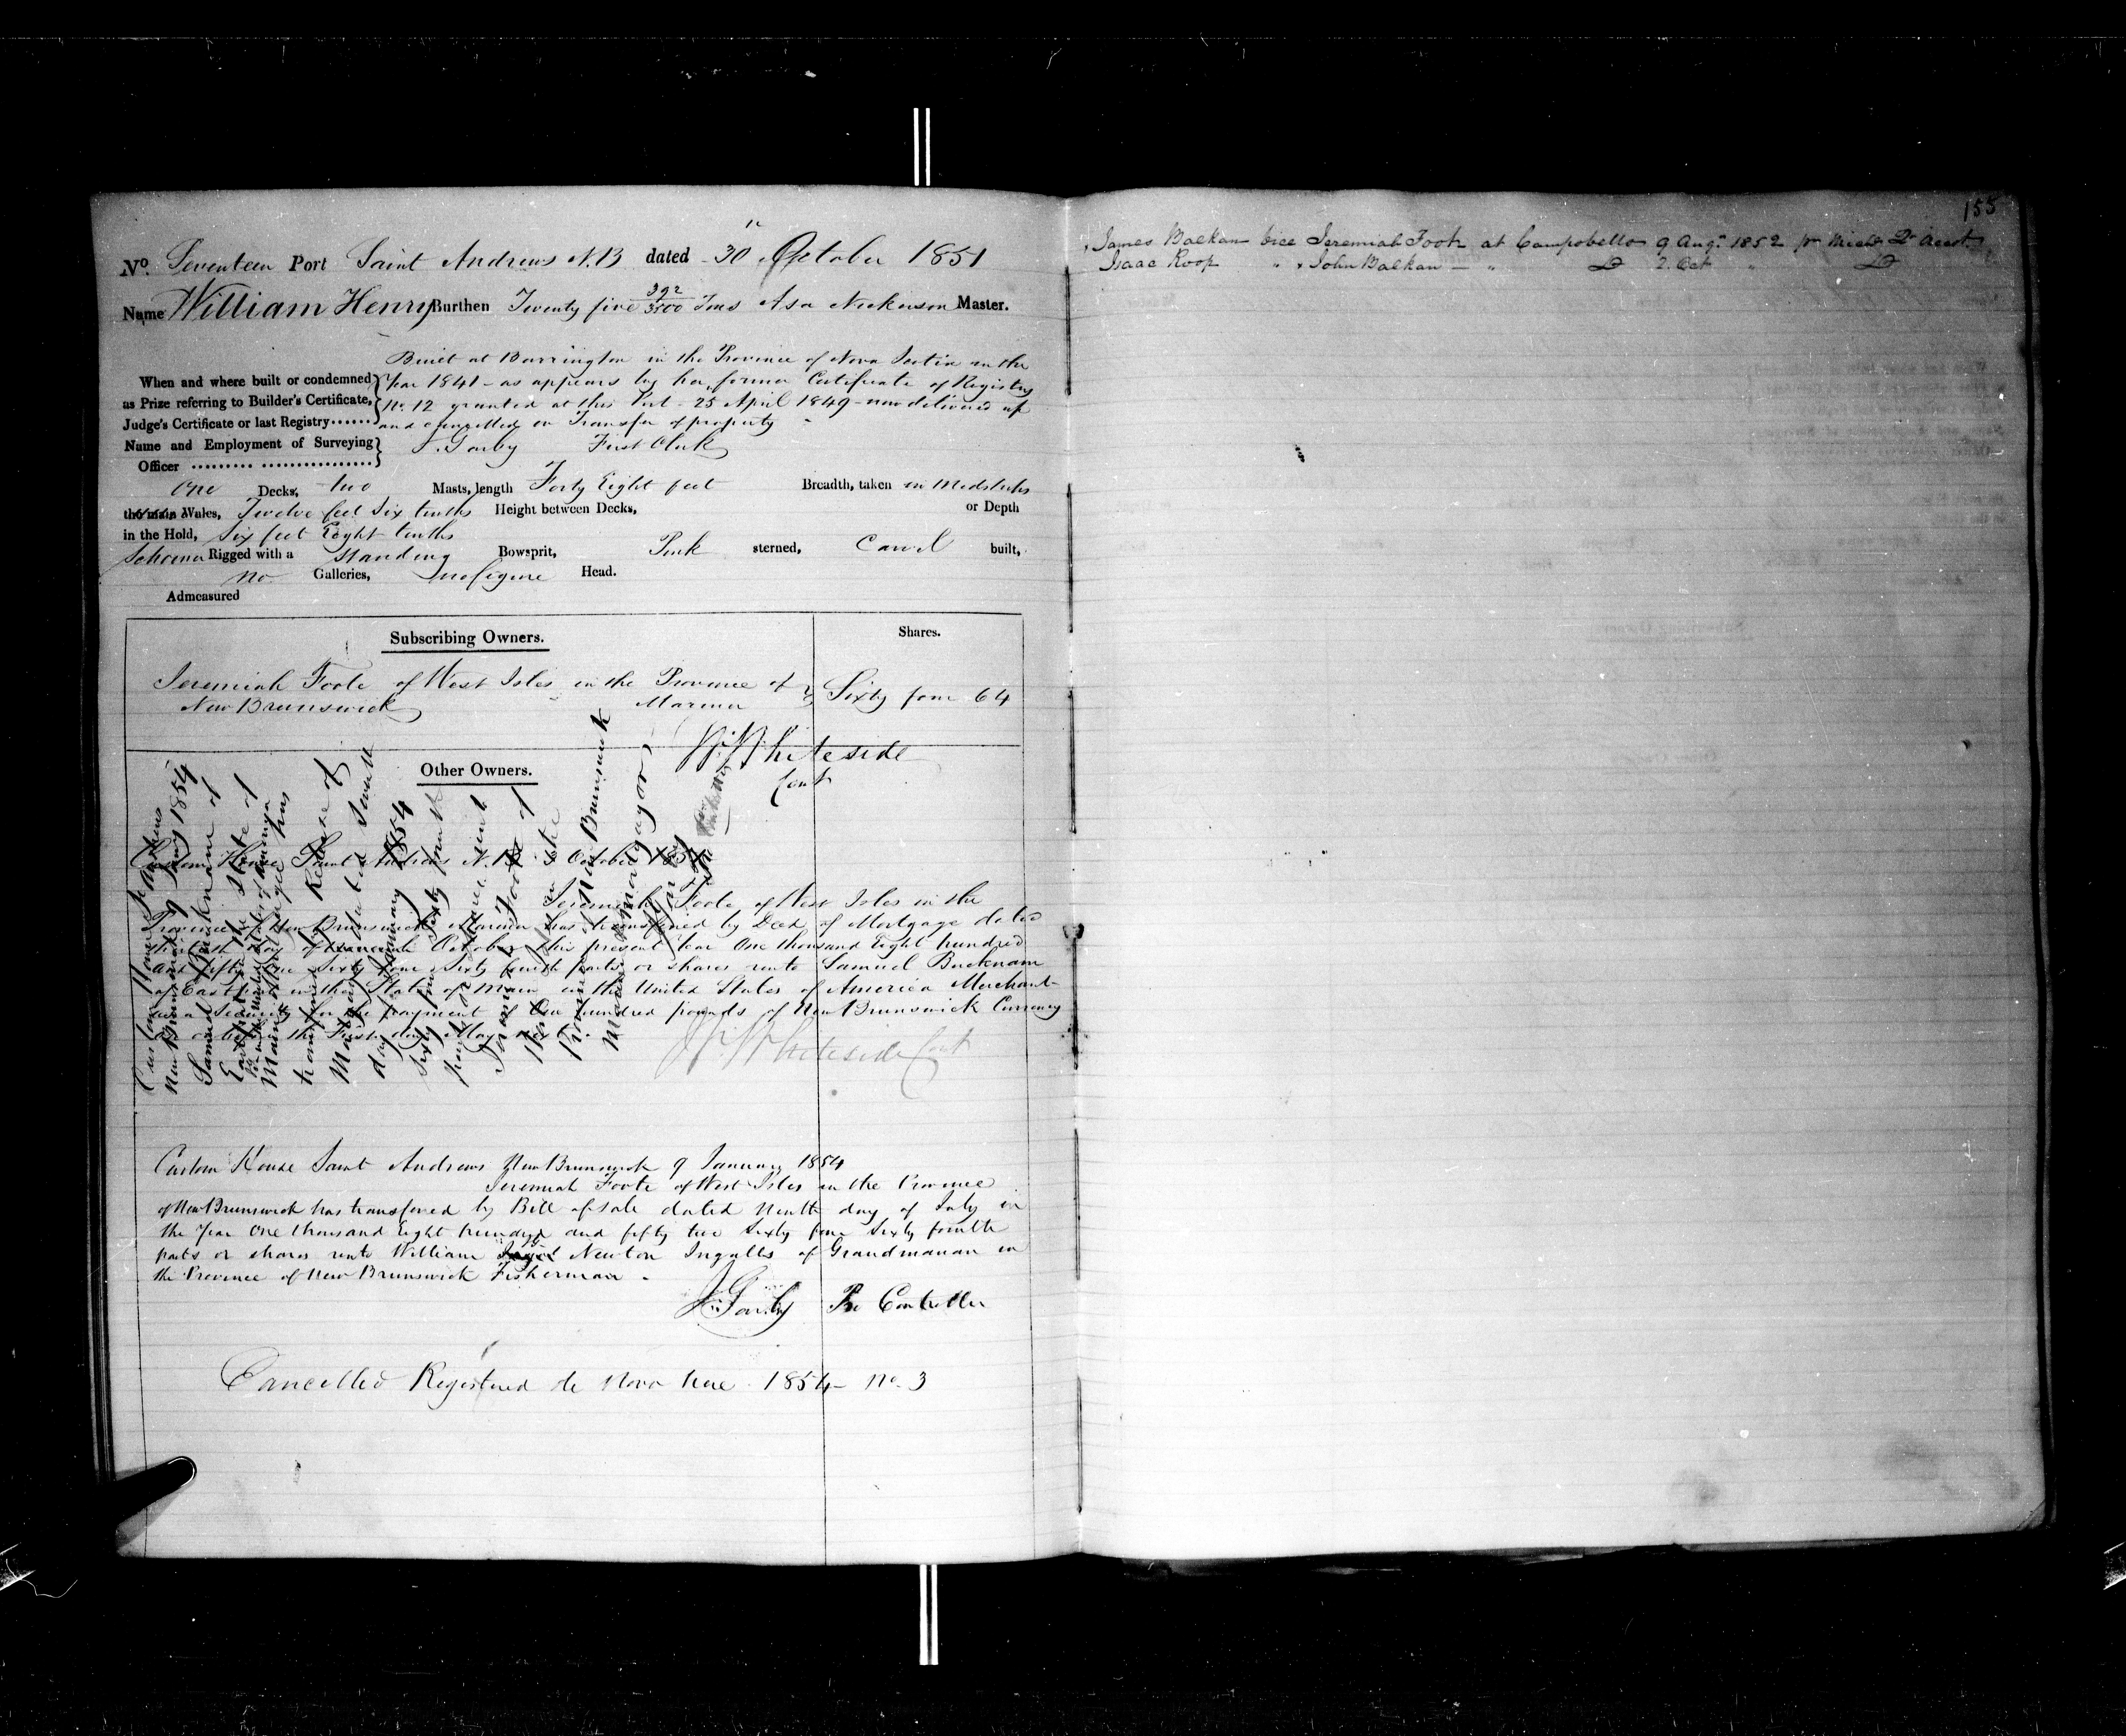 No. Seventeen Port Saint Andrews N.B dated 30 October 1851
Name William Henry Burthen Twenty five 392/3500 Tons Asa Nickerson Master.
Built at Barrington in the Province of Nova Scotia in the
When and where built or condemned
Year 1841 - as appears by her former Certificate of Registry
as Prize referring to Builder's Certificate,
No. 12 granted at this Port - 25 April 1849 - now delivered up
Judge's Certificate or last Registry
and cancelled on Transfer of property
Name and Employment of Surveying
Officer
J. Garby First Clerk
One Decks, two Masts, length Forty Eight feet Breadth, taken in Midships
the main Wales, Twelve feet Six tenths Height between Decks, or Depth
in the Hold, Six feet Eight tenths
Schooner Rigged with a Standing Bowsprit, Pink sterned, Carvel built,
no Galleries, no figure Head.
Admeasured
Subscribing Owners. Shares.
Jeremiah Foote of West Isles in the Province of
New Brunswick Mariner Sixty four 64
W. Whiteside
Cont
Other Owners.
Custom House Saint Andrews N.B. October 1851
Jeremiah Foote of West Isles in the
Province of New Brunswick Mariner has transferred by Deed of Mortgage dated
thirtieth day of October this present Year One thousand Eight hundred
and fifty one Sixty four Sixty fourth parts or shares unto Samuel Bucknam
of Eastport in the State of Main in the United States of America Merchant
as a Security for the payment of One hundred pounds of New Brunswick Currency
on or before the First day of May next.
Whiteside Cont
Custom House St Andrews
New Brunswick 9 Jany 1854
Samuel Bucknam of
Eastport in the State of
Main in the United States of America
Merchant Mortgagee has
transferred by Release of
Mortgage dated Seventh
day of January 1854
Sixty four Sixty fourth
parts or shares unto
Jeremiah Foote of
West Isles in the
Province of New Brunswick
Mariner Mortgagor
J. Garby
Custom House Saint Andrews New Brunswick 9 January 1854
Jeremiah Foote of West Isles in the Province
of New Brunswick has transfered by Bill of sale dated Ninth day of July in
the Year One thousand Eight hundred and fifty two Sixty four Sixty fourth
parts or shares unto William Newton Ingalls of Grandmanan in
the Province of New Brunswick Fisherman.
J. Garby Pro Controller
Cancelled Registered de Novo here 1854 - No. 3
155
James Balkam vice Jeremiah Foote at Campobello 9 Augt. 1852
Isaac Roop " " John Balkam - " Do 2 Oct " Do